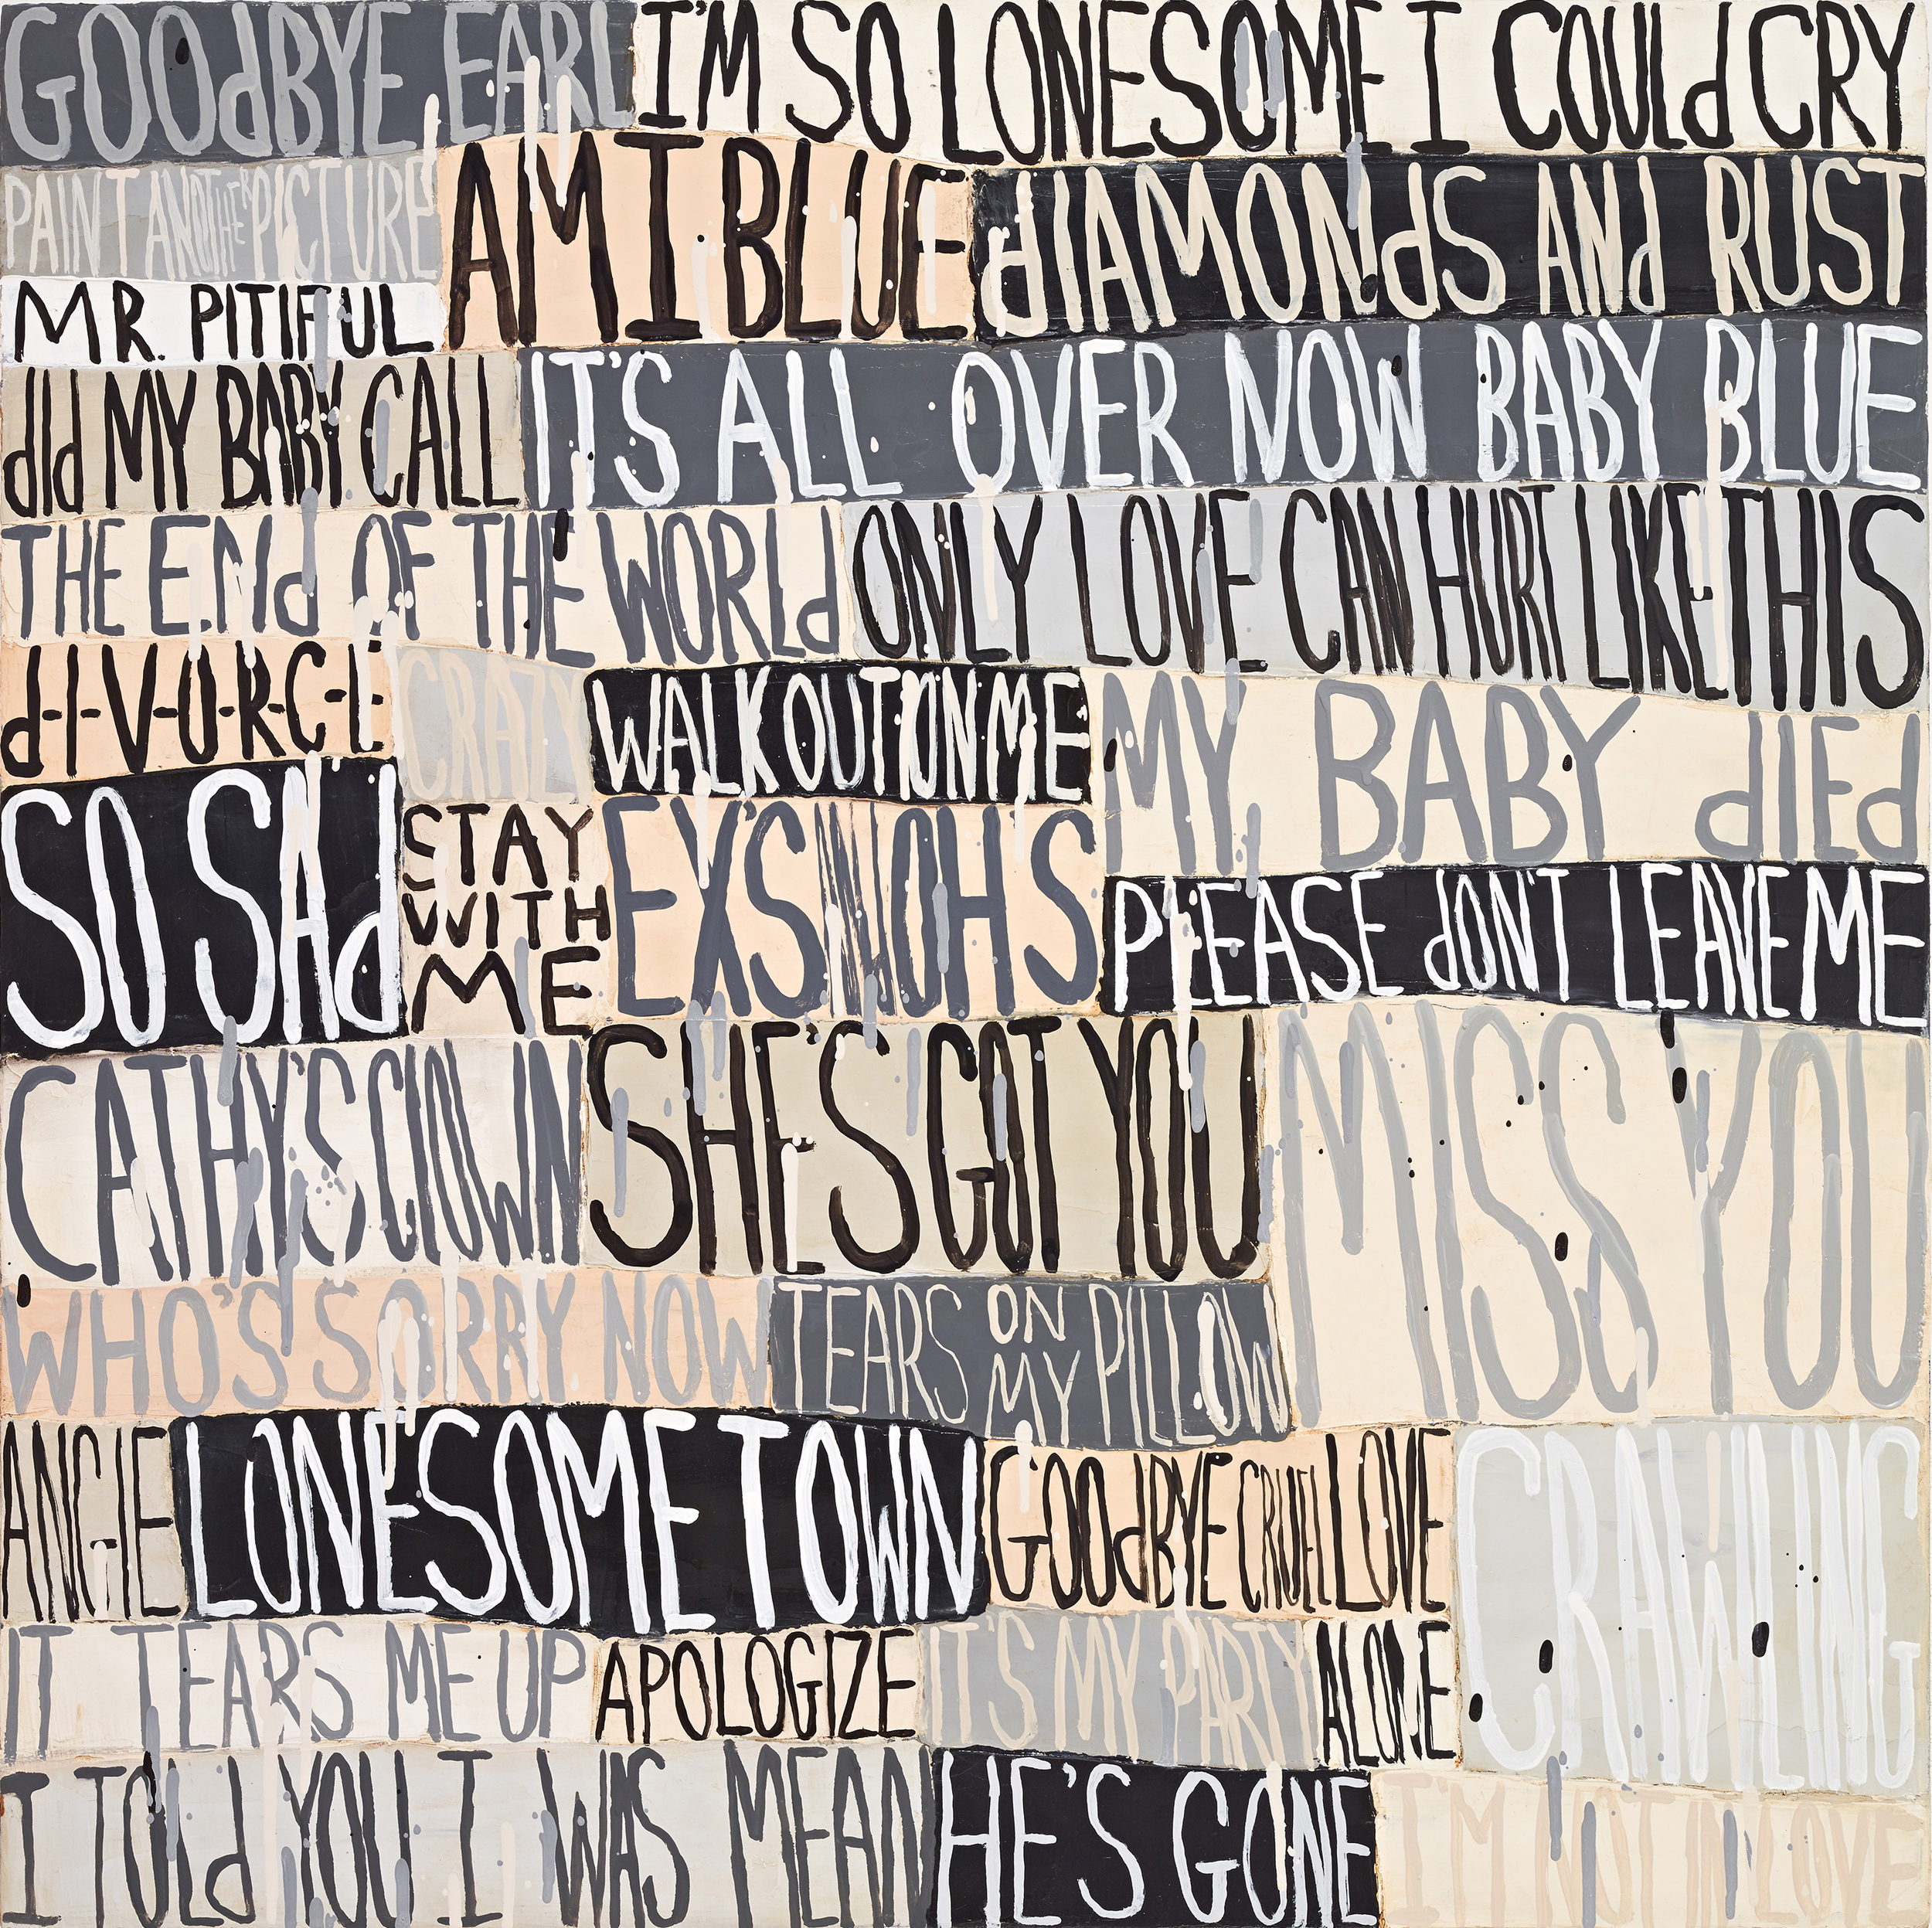 GOOdBYE EARL
I'M SO LONESOME I COULd CRY
PAINT ANOTHER PICTURE
AM I BLUE
dIAMONdS ANd RUST
MR. PITIFUL
dId MY BABY CALL
IT'S ALL OVER NOW BABY BLUE
THE ENd OF THE WORLd
ONLY LOVE CAN HURT LIKE THIS
d-I-V-O-R-C-E
CRAZY
WALK OUT ON ME
MY BABY dIEd
SO SAd
STAY
WITH
ME
EX'S N OH'S
PLEASE dON'T LEAVE ME
CATHY'S CLOWN
SHE'S GOT YOU
MISS YOU
WHO'S SORRY NOW
TEARS ON MY PILLOW
ANGIE
LONESOME TOWN
GOOdBYE CRUEL LOVE
CRAWLING
IT TEARS ME UP
APOLOGIZE
IT'S MY PARTY
ALONE
I TOLd YOU I WAS MEAN
HE'S GONE
I'M NOT IN LOVE